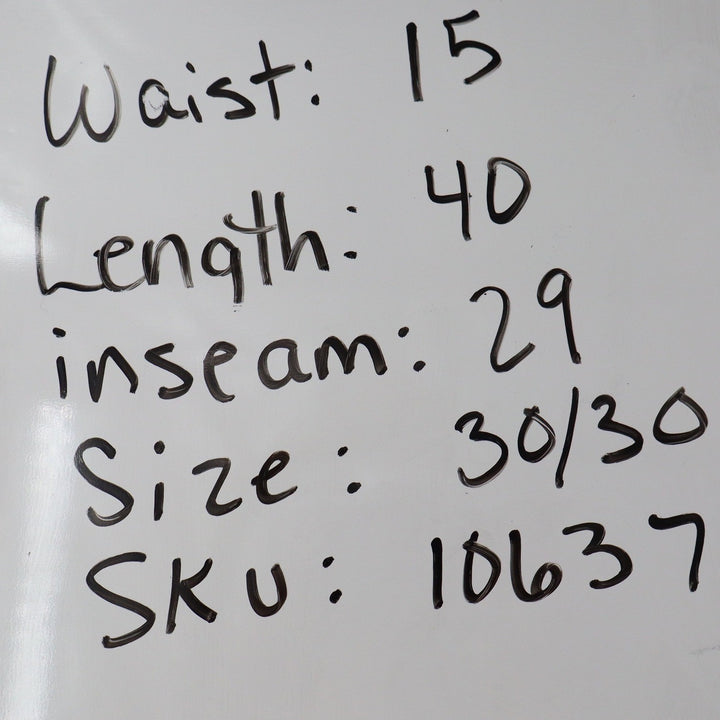 Waist: 15
Length: 40
inseam: 29
Size: 30/30
SKU: 10637